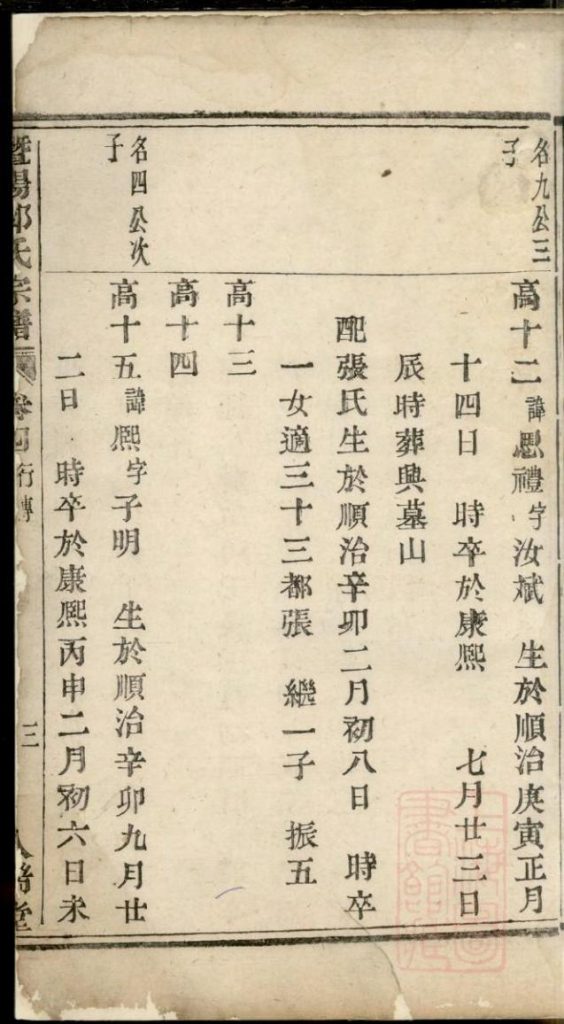 名九公三
子
高十二 諱思禮字汝斌 生於順治庚寅正月
十四日 時卒於康熙 七月廿三日
辰時葬興墓山
配張氏生於順治辛卯二月初八日 時卒
一女適三十三都張 繼一子 振五
高十三
高十四
名四公次
子
高十五 諱熙字子明 生於順治辛卯九月廿
二日 時卒於康熙丙申二月初六日未
暨陽邱氏宗譜 卷四 行傳 三